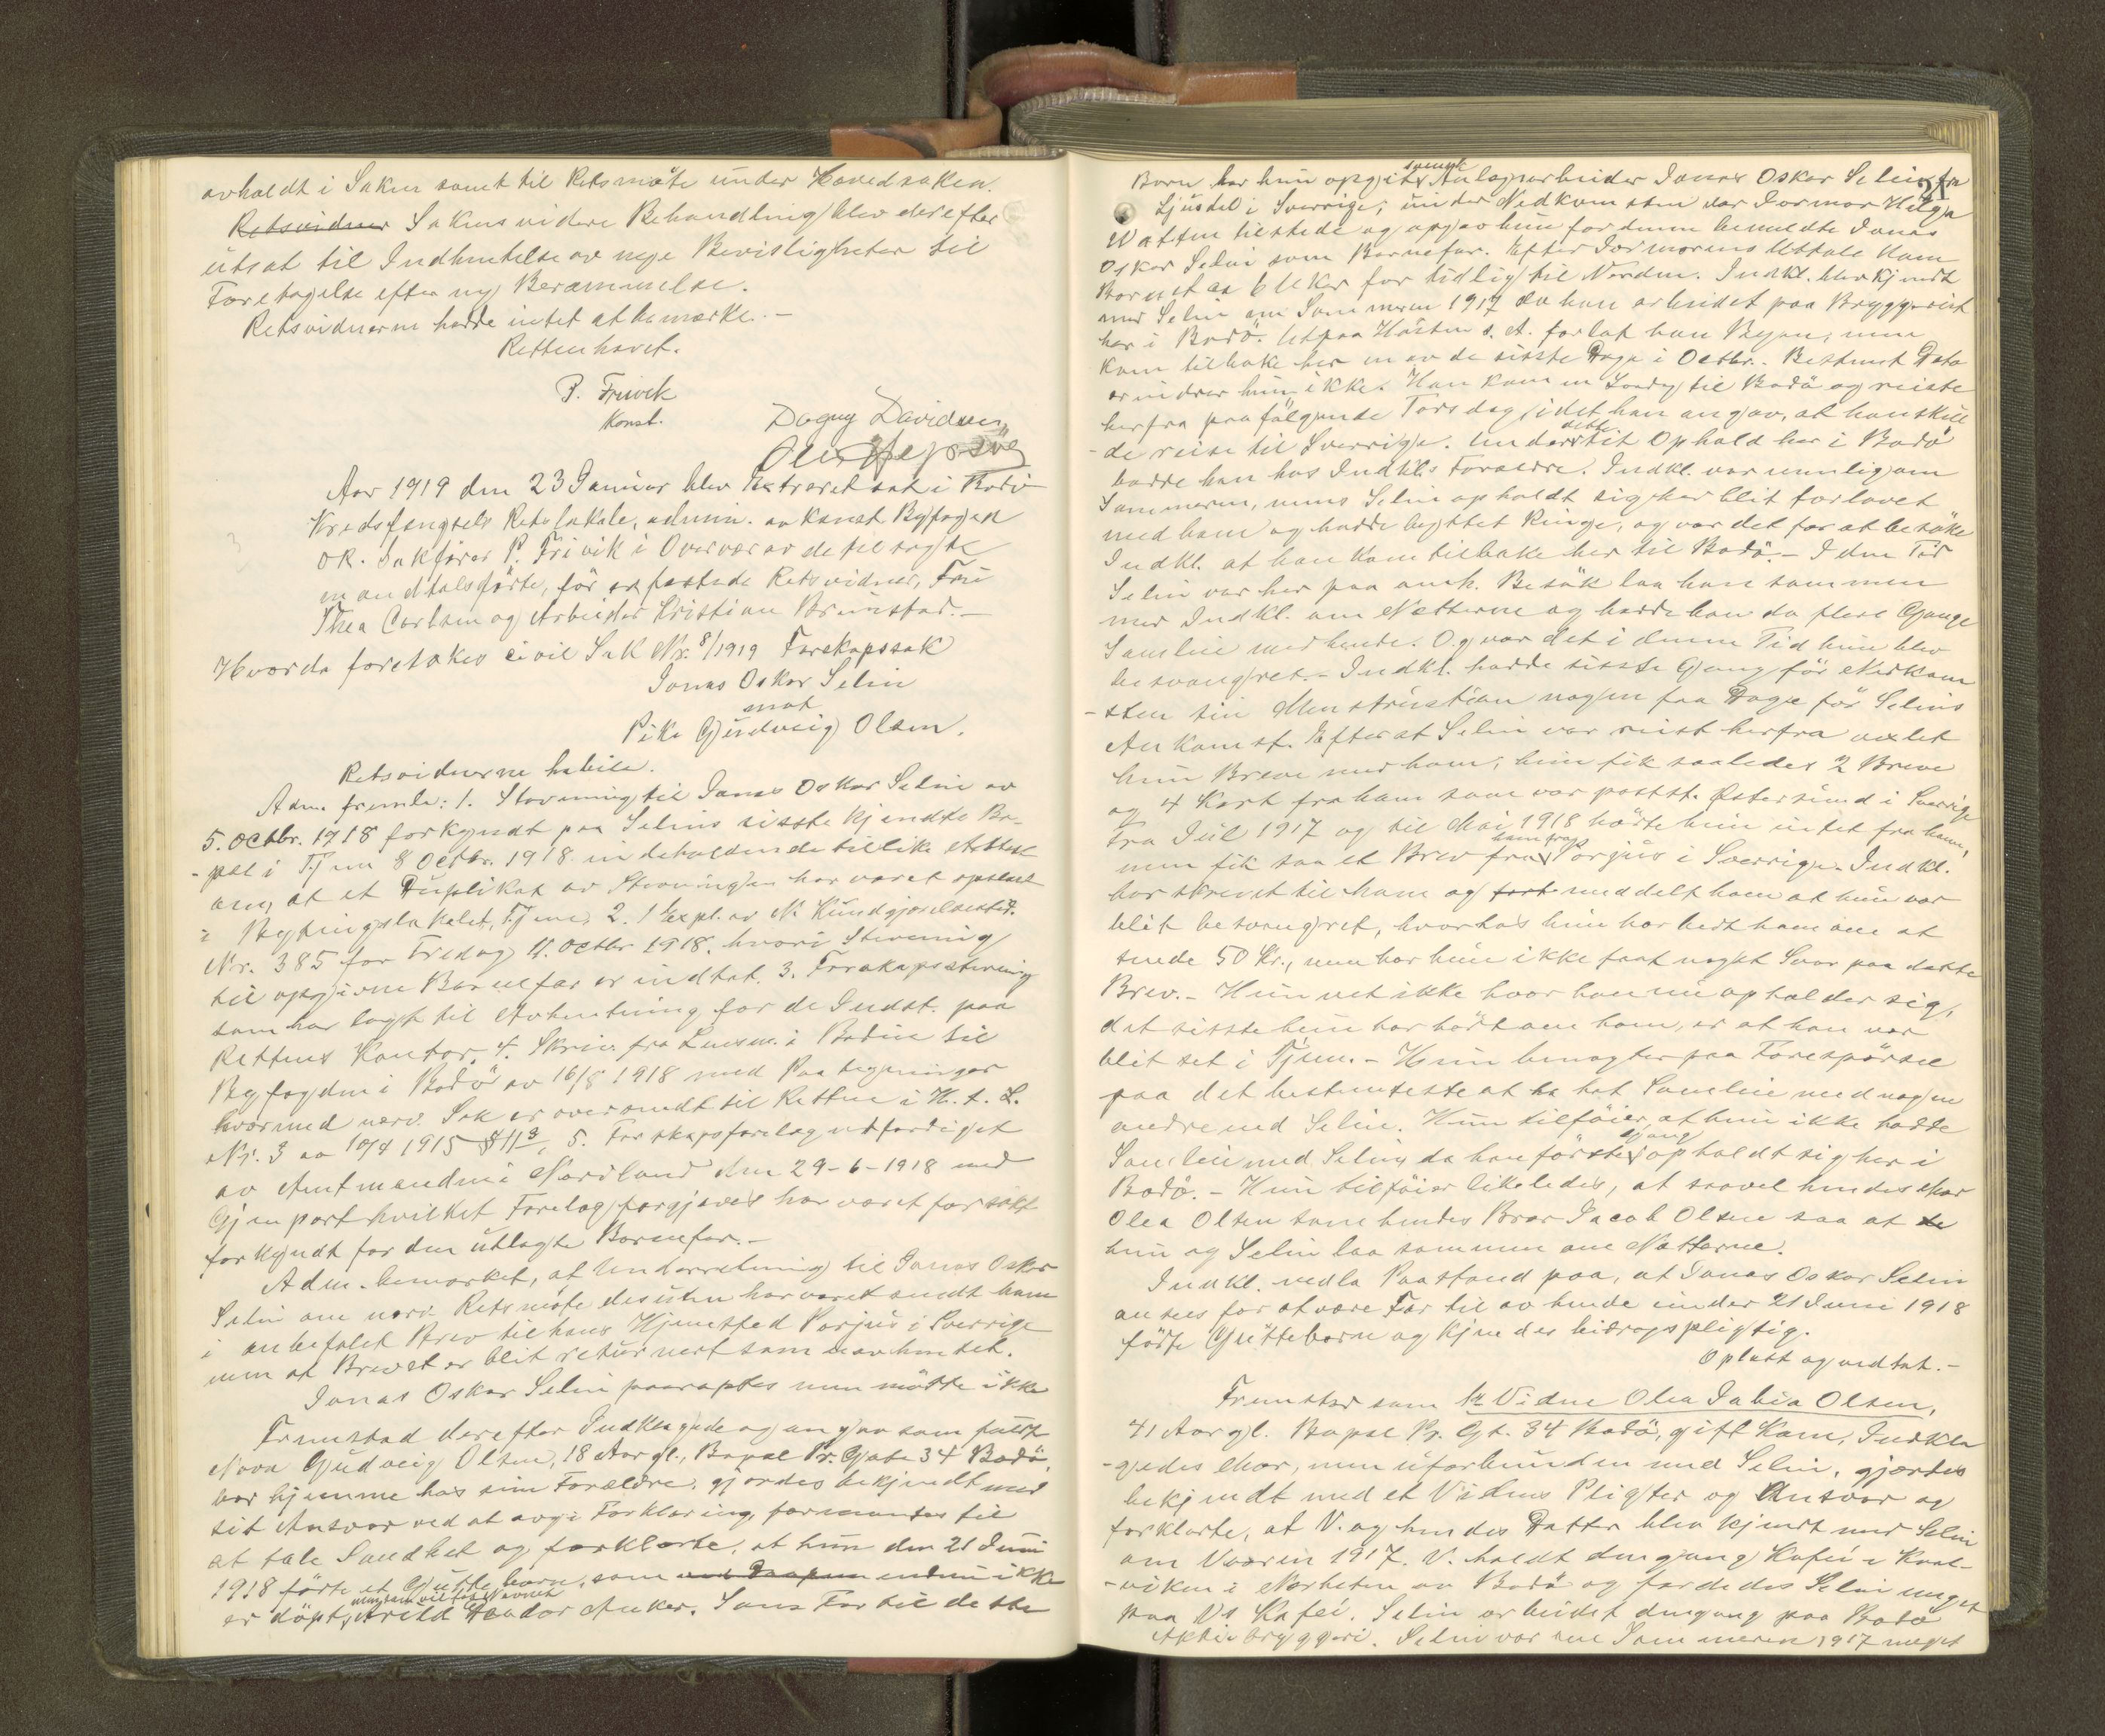 avholdt i Saken samt til Retsmøte under Hovedsaken.
Retsvidner Sakens videre Behandling blev derefter
utsat til Indhentelse av nye Bevisligheter til
Foretagelse efter ny Berammelse.
Retsvidnerne hadde intet at bemerke. –
Retten hævet.
P. Frivik
Konst.
Dagny Davidsen
Aar 1919 den 23 Januar blev Extraret sat i Bodø
Kredsfængsels Retslokale, admin. av konst. Byfoged
OR. Sakfører P. Frivik i Overvær av de til rogte
en andtalsførte, før er fæstede Retsvidner, Fru
Thea Carlsen og Arbeider Kristian Brunstad. –
Hvorda foretokes civil Sak Nr. 8/1919 Farskapssak
Jonas Oskar Selin
mot
Pike Gudveig Olsen.
Retsvidnerne habile.
Adm. fremla: 1. Stevning til Jonas Oskar Selin av
5. Octbr. 1918 forkyndt paa Selins sisste kjendte Bo-
-pæl i Tjem 8 Octbr. 1918 indeholdende tillike Attest
om, at et Duplikat av Stevningen har været opslaat
i Bytingslokalet, Tjem, 2. 1 Expl. av N. Kundgjørelsestid.
Nr. 385 for Fredag 11. Octbr 1918. hvori Stevning
til opgivne Barnefar er indtat. 3. Farskapsstevning
som har lagt til Avhentning for de Indst. paa
Rettens Kontor. 4. Skriv. fra Lensm. i Bodin til
Byfogden i Bodø av 16/8 1918 med Paategninger
hvormed nærv. Sak er oversendt til Retten i H. t. L.
Nr. 3 av 10/4 1915 § 11, 5. Farskapsforelæg utfærdiget
av Amtmanden i Nordland den 29-6-1918 med
Gjenpart hvilket Forelæg forgjæves har været forsøkt
forkyndt for den utlagte Barnefar. –
Adm. bemerket, at Underretning til Jonas Oskar
Selin om nærv. Retsmøte desuten har været sendt ham
i anbefalet Brev til hans Hjemsted Porjus i Sverrige
men at Brevet er blit returnert som uavhentet.
Jonas Oskar Selin paaroptes men møtte ikke
Fremstod derefter Indklagede og angav som fuldt
Navn Gudveig Olsen, 18 Aar gl., Bopæl Pr. Gate 34 Bodø,
bor hjemme hos sine Forældre, gjordes bekjendt med
sit Ansvar ved at avgi Forklaring, formantes til
at tale Sandhet og forklarte, at hun den 21 Juni
1918 fødte et Guttebarn, som endnu ikke
er døpt, men som vil faa Navnet Arild Teodor Anker. Som Far til dette
Barn har hun opgit svensk Anlægsarbeider Jonas Oskar Selin fra
Ljusdal i Sverrige; under Nedkomsten var Jormor Helga
Watten tilstede og opgav hun for denne bemeldte Jonas
Oskar Selin som Barnefar. Efter Jormorens Uttale kom
Barnet ca 6 Uker for tidlig til Verden. Indkl. blev kjendt
med Selin om Sommeren 1917 da han arbeidet paa Bryggeriet
her i Bodø. Utpaa Høsten s. A. forlot han Byen, men
kom tilbake her en av de sisste Dage i Octbr. Bestemt Dato
erindrer hun ikke. Han kom en Lørdag til Bodø og reiste
herfra paafølgende Torsdag, idet han angav, at han skul
-de reise til Sverrige. Under dette sit Ophold her i Bodø
bodde han hos Indkl.s Forældre. Indkl. var nemlig om
Sommeren, mens Selin opholdt sig her blit forlovet
med ham og hadde byttet Ringe, og var det for at besøke
Indkl. at han kom tilbake her til Bodø. – I den Tid
Selin var her paa omh. Besøk laa han sammen
med Indkl. om Nætterne og hadde han da flere Gange
Samleie med hende. Og var det i denne Tid hun blev
besvangret. – Indkl. hadde sisste Gang før Nedkom
-sten sin Menstruation nogen faa Dage før Selins
Ankomst. Efterat Selin var reist herfra vexlet
hun Breve med ham; hun fik saaledes 2 Breve
og 4 Kort fra ham som var postst. Østersund i Sverrige
Fra Jul 1917 og til Mai 1918 hørte hun intet fra ham,
men fik saa et Brev fra ham fra Porjus i Sverrige. Indkl.
har skrevet til ham og fort meddelt ham at hun var
blit besvangret, hvorhos hun har bedt ham om at
sende 50 Kr., men har hun ikke faat noget Svar paa dette
Brev. – Hun vet ikke hvor han nu opholder sig,
det sisste hun har hørt om ham, er at han var
blit set i Tjem. – Hun benegter paa Forespørsel
paa det bestemteste at ha hat Samleie med nogen
andre end Selin. Hun tilføier, at hun ikke hadde
Samleie med Selin da han første Gang opholdt sig her i
Bodø. – Hun tilføier likeledes, at saavel hendes Mor
Olea Olsen som hendes Bror Jacob Olsen saa at de
hun og Selin laa sammen om Nætterne.
Indkl. nedla Paastand paa, at Jonas Oskar Selin
ansees for at være Far til av hende under 21 Juni 1918
fødte Guttebarn og kjendes bidragspligtig.
Oplæst og vedtat. –
Fremstod som 1ste Vidne Olea Jakia Olsen,
41 Aar gl. Bopæl Pr. Gt. 34 Bodø, gift Kone, Indkla
-gedes Mor, men uforbunden med Selin, gjordes
bekjendt med et Vidnes Pligter og Ansvar og
forklarte, at V. og hendes Datter blev kjendt med Selin
om Vaaren 1917. V. holdt dengang Kafé i Kval-
-viken i Nærheten av Bodø og færdedes Selin meget
paa V.s Kafé. Selin arbeidet dengang paa Bodø
Aktiebryggeri. Selin var om Sommeren 1917 meget